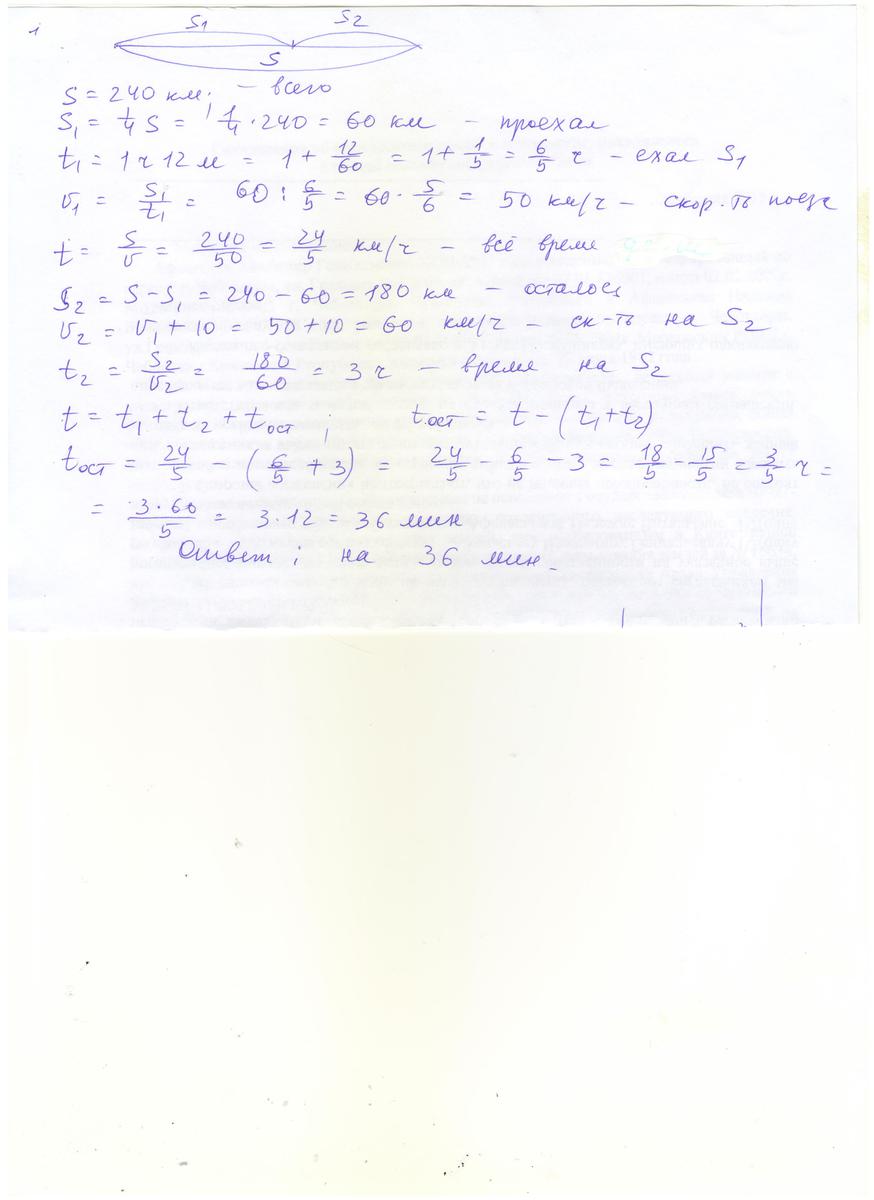 1
S1 S2
S
S = 240 км; — всего
S₁ = 1/4 S = 1/4 · 240 = 60 км — проехал
t₁ = 1 ч 12 м = 1 + 12/60 = 1 + 1/5 = 6/5 ч — ехал S₁
v₁ = S₁/t₁ = 60 : 6/5 = 60 · 5/6 = 50 км/ч — скор-ть поезд
t = S/v = 240/50 = 24/5 км/ч — всё время
S₂ = S − S₁ = 240 − 60 = 180 км — осталось
v₂ = v₁ + 10 = 50 + 10 = 60 км/ч — ск-ть на S₂
t₂ = S₂/v₂ = 180/60 = 3 ч — время на S₂
t = t₁ + t₂ + tост ; tост = t − (t₁ + t₂)
tост = 24/5 − (6/5 + 3) = 24/5 − 6/5 − 3 = 18/5 − 15/5 = 3/5 ч =
= 3·60/5 = 3·12 = 36 мин
Ответ: на 36 мин.